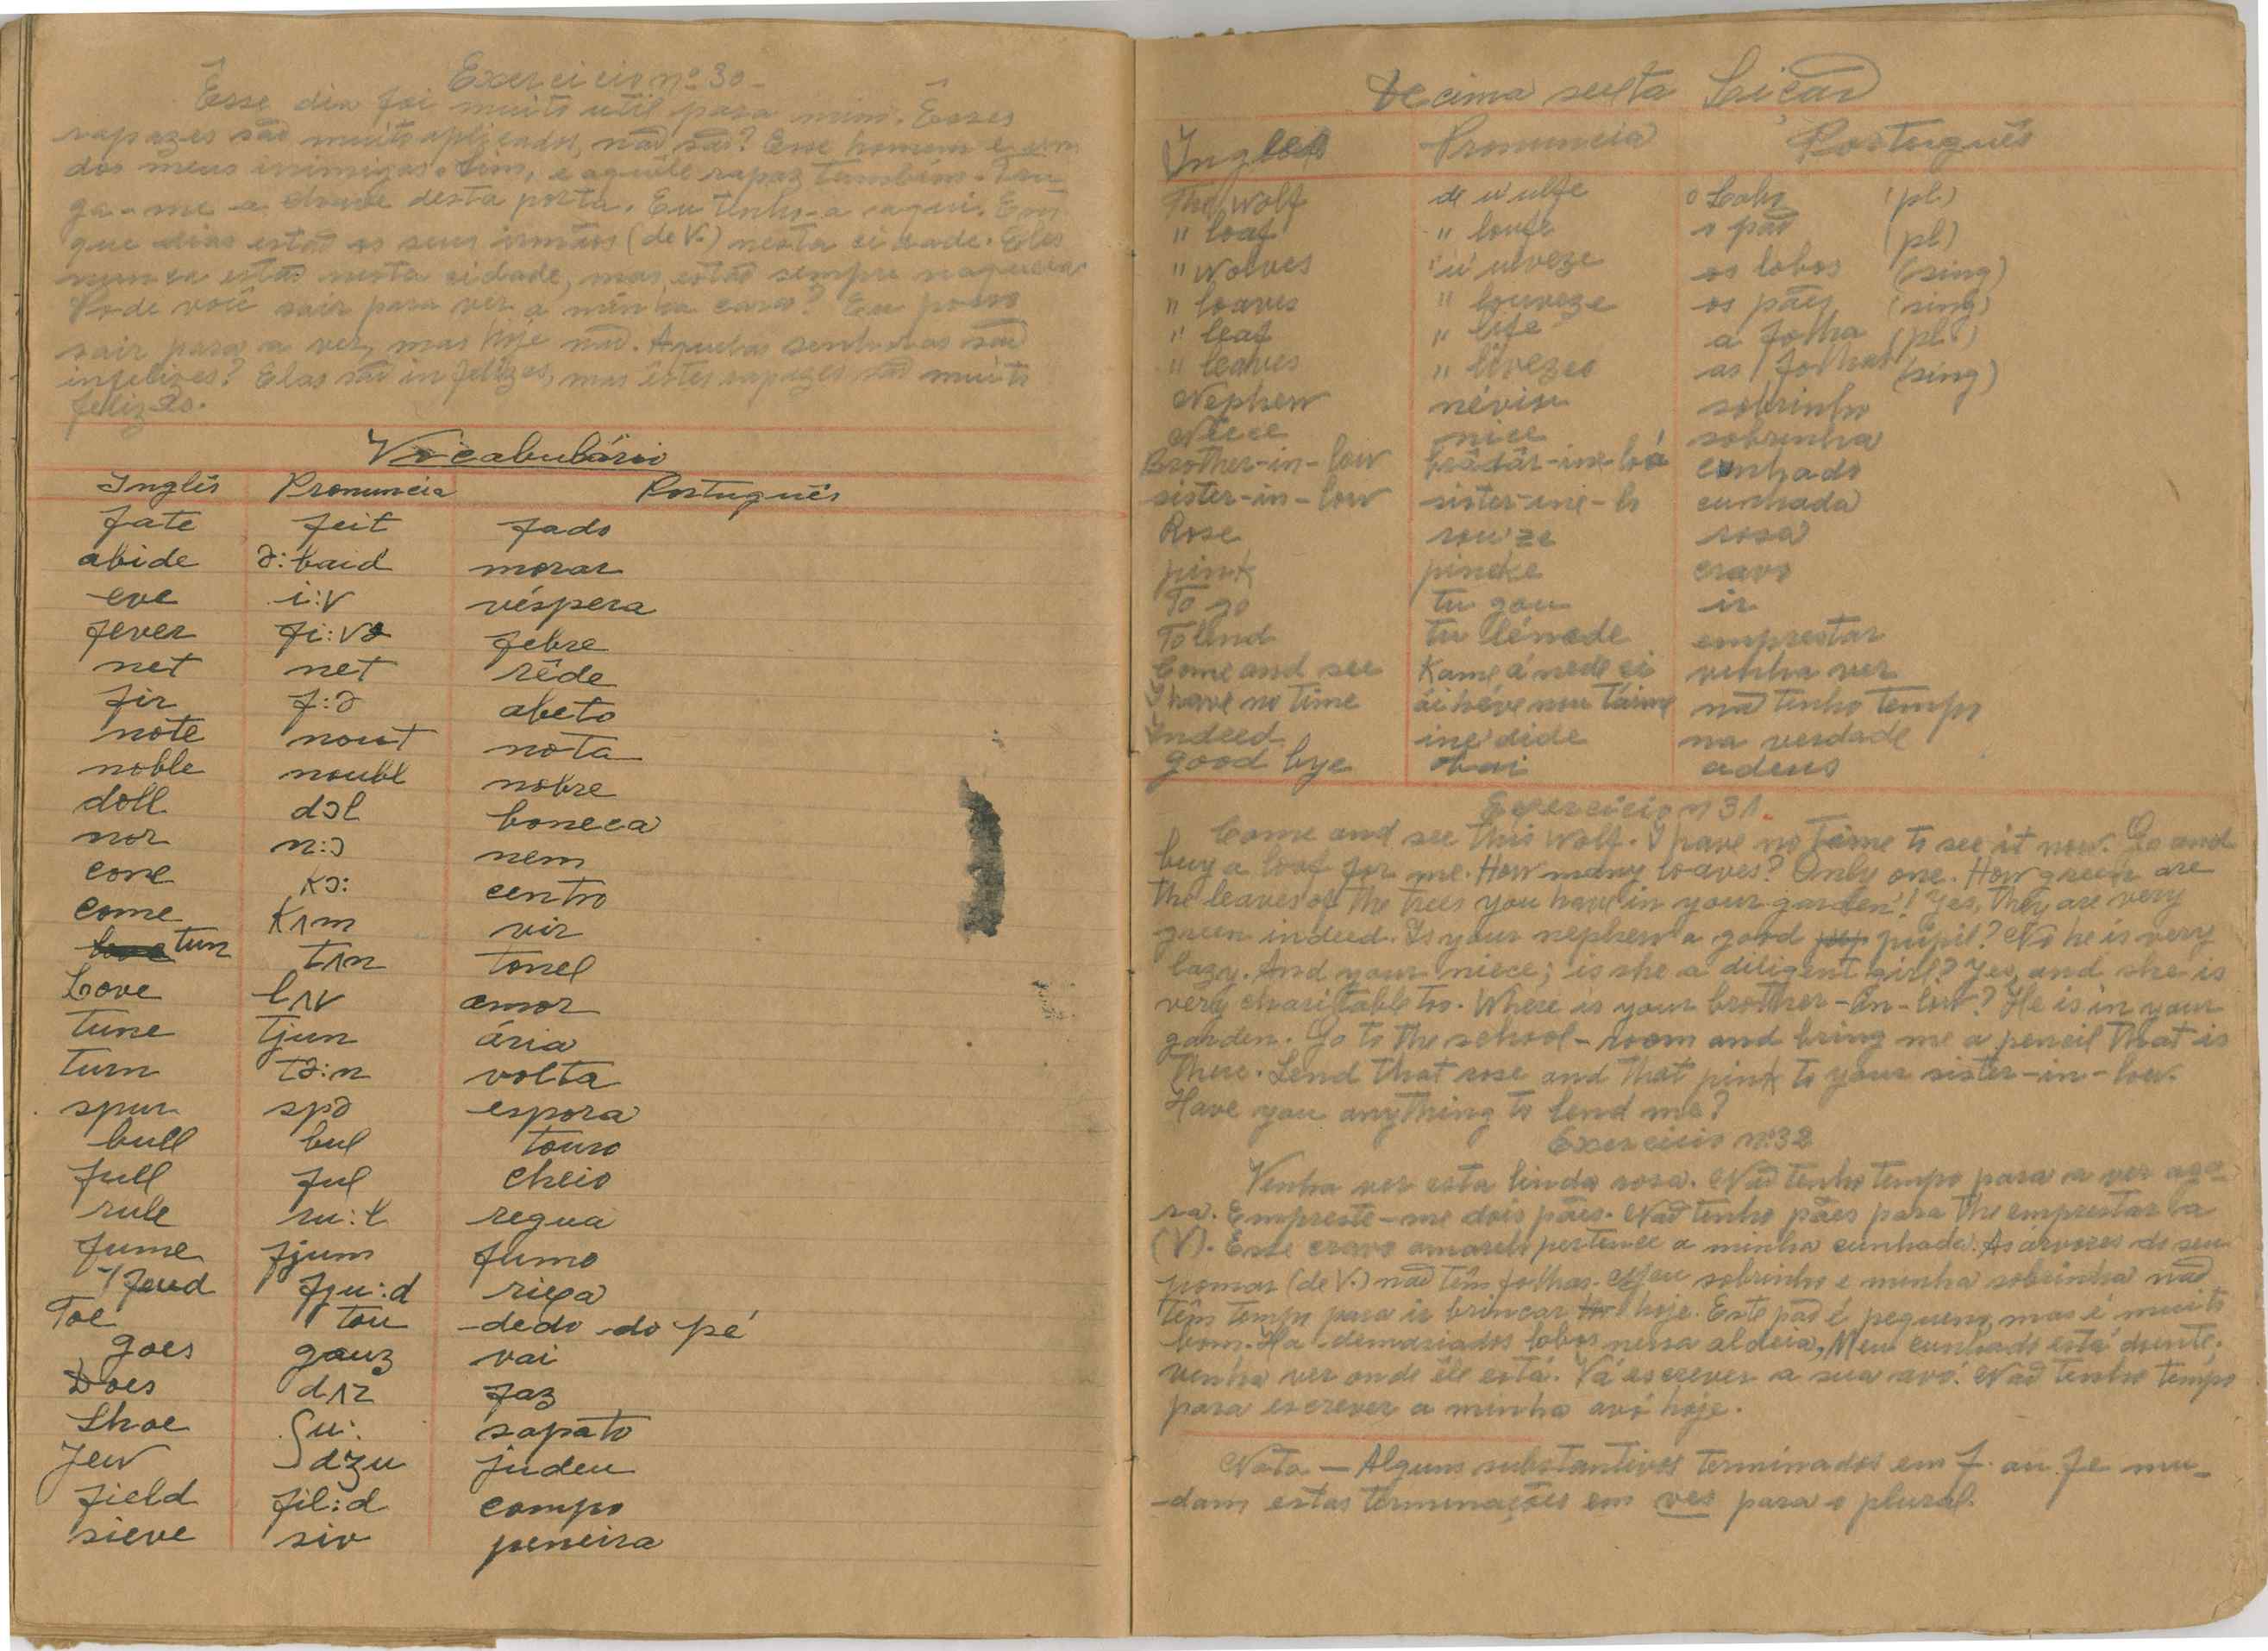 Exercicio nº 30
Êsse dia foi muito util para mim. Êsses
rapazes são muito aplicados, não são? Esse homem é um
dos meus inimigos. Sim, e aquêle rapaz tambêm. Tra
ga-me a chave desta porta. Eu tenho-a aqui. Em
que dias estão os seus irmãos (de V.) nesta cidade. Eles
nunca estão nesta cidade, mas estão sempre naquela
Pode você sair para ver a minha casa? Eu posso
sair para a ver, mas hoje não. Aquelas senhoras são
infelizes? Elas são infelizes, mas êstes rapazes são muito
felizes.
Vocabulário
Inglês Pronuncia Português
fate feit fado
abide ə:baid morar
eve i:v véspera
fever fi:və febre
net net rêde
fir f:ə abeto
note nout nota
noble noubl nobre
doll dɔl boneca
nor n:ɔ nem
cone kɔ: centro
come kʌm vir
tun tʌn tonel
Love lʌv amor
tune tjun ária
turn tə:n volta
spur spə espora
bull bul touro
full ful cheio
rule ru:l regua
fume fjum fumo
feud fju:d rixa
Toe tou dedo do pé
goes gouz vai
Does dʌz faz
Shoe ʃu: sapato
Jew dʒu judeu
field fil:d campo
sieve siv peneira
Decima sexta Lição
Ingles Pronuncia Português
The wolf de u ulfe o Lobo (pl)
" loaf " loufe o pão (pl)
" wolves " u ulveze os lobos (sing)
" loaves " louveze os pães (sing)
" leaf " life a folha (pl.)
" leaves " livezes as folhas (sing)
Nephew néviu sobrinho
Niece nice sobrinha
Brother-in-low brâdâr-ine-ló cunhado
sister-in-low sister-ine-lo cunhada
Rose rouze rosa
pink pineke cravo
To go tu gou ir
To lend tu lénede emprestar
Come and see Kame ánede ci venha ver
I have no time ái héve nou táime não tenho tempo
Indeed ine'dide na verdade
good bye bai adeus
Exercicio n 31.
Come and see this wolf. I have no time to see it now. Go and
buy a loaf for me. How many loaves? Only one. How green are
the leaves of the trees you have in your garden! Yes, they are very
green indeed. Is your nephew a good pupil? No he is very
lazy. And your niece; is she a diligent girl? Yes, and she is
very charitable too. Where is your brother-in-low? He is in your
garden. Go to the school-room and bring me a pencil that is
there. Lend that rose and that pink to your sister-in-low.
Have you anything to lend me?
Exercicio nº 32
Venha ver esta linda rosa. Não tenho tempo para a ver ago-
ra. Empreste-me dois pães. Não tenho pães para lhe emprestar a
(V). Esse cravo amarelo pertence a minha cunhada. As árvores do seu
pomar (de V.) não têm folhas. Meu sobrinho e minha sobrinha não
têm tempo para ir brincar hoje. Este pão é pequeno, mas é muito
bom. Ha demasiados lobos nessa aldeia, Meu cunhado está doente;
venha ver onde êle está. Vá escrever a sua avó. Não tenho tempo
para escrever a minha avó hoje.
Nota — Alguns substantivos terminados em f ou fe mu-
-dam estas terminações em ves para o plural.